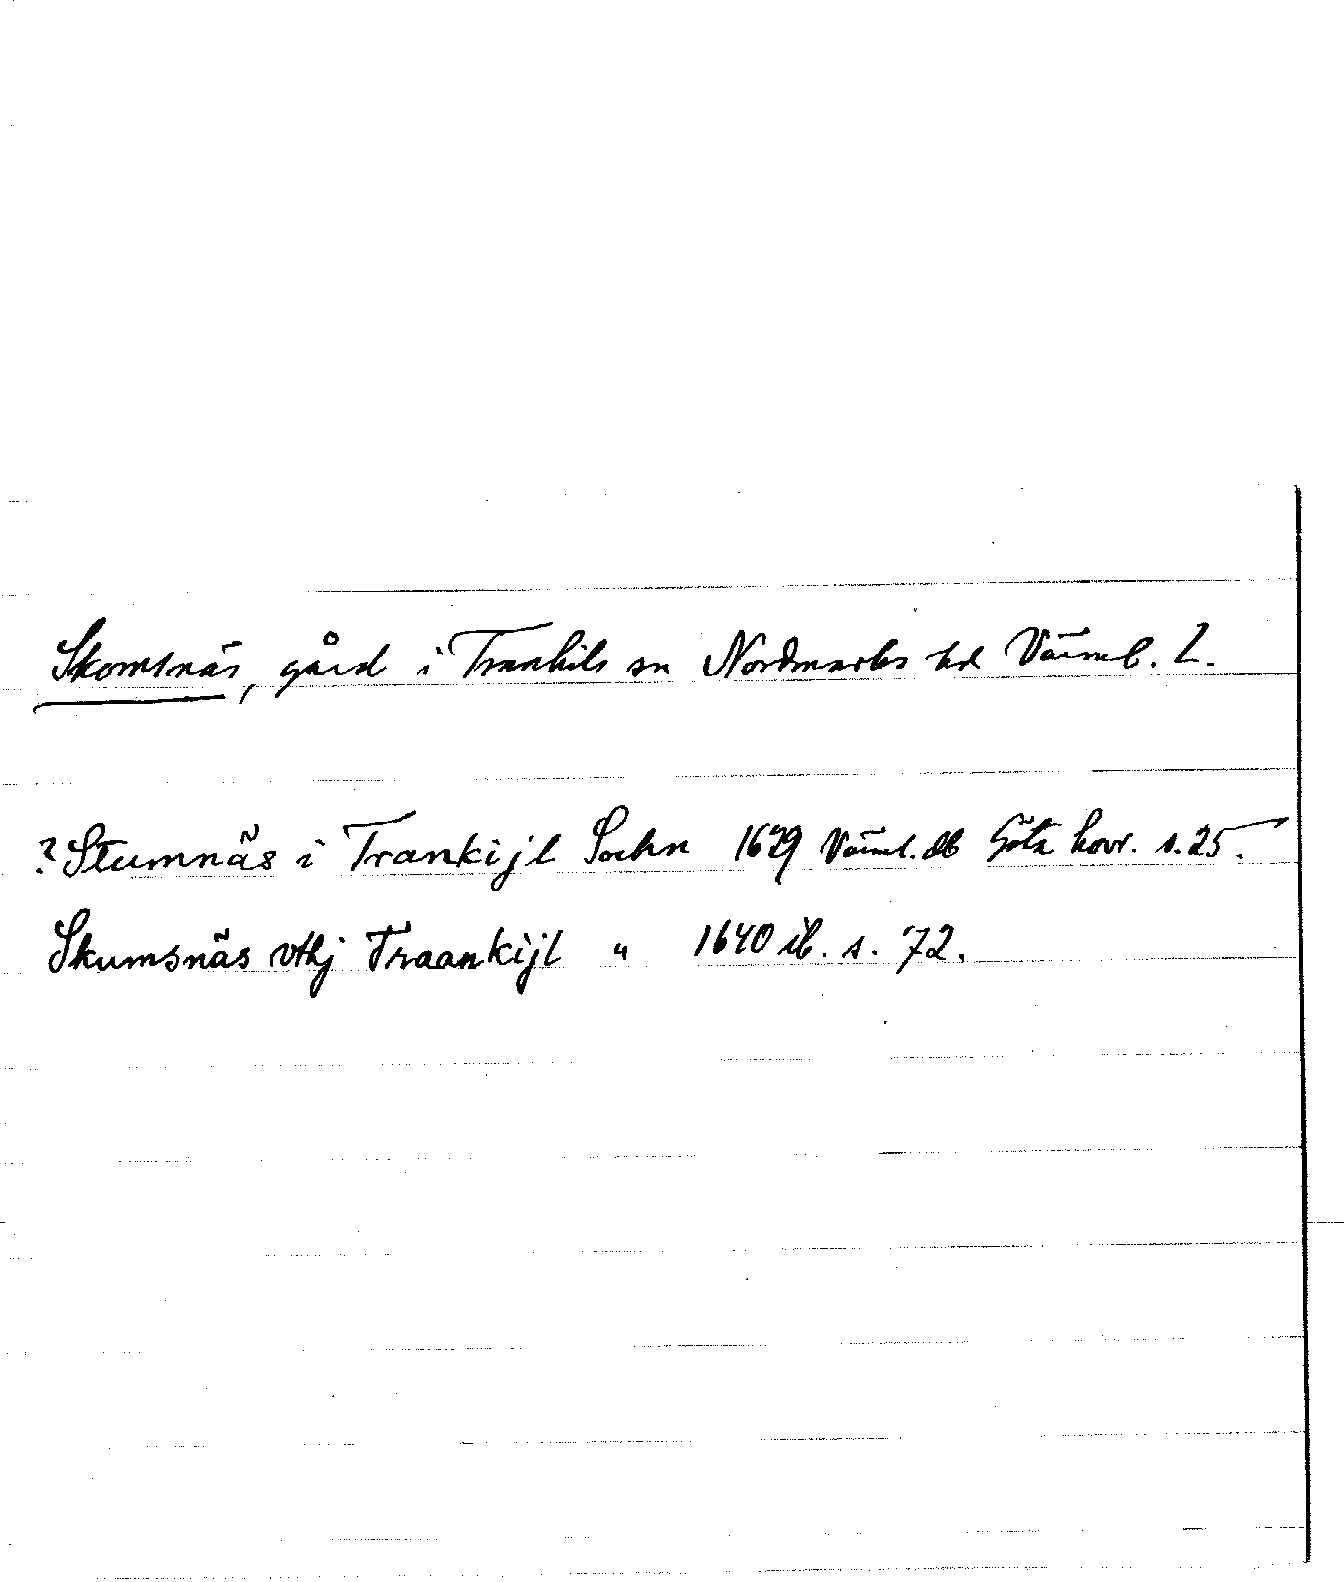 Skomsnäs, gård i Trankils sn Nordmarks hd Värml. L.
? Stumnäs i Trankijl Sochn 1629 Värml. db Göta hovr. s. 25.
Skumsnäs vthj Traankijl " 1640 ib. s. 72.